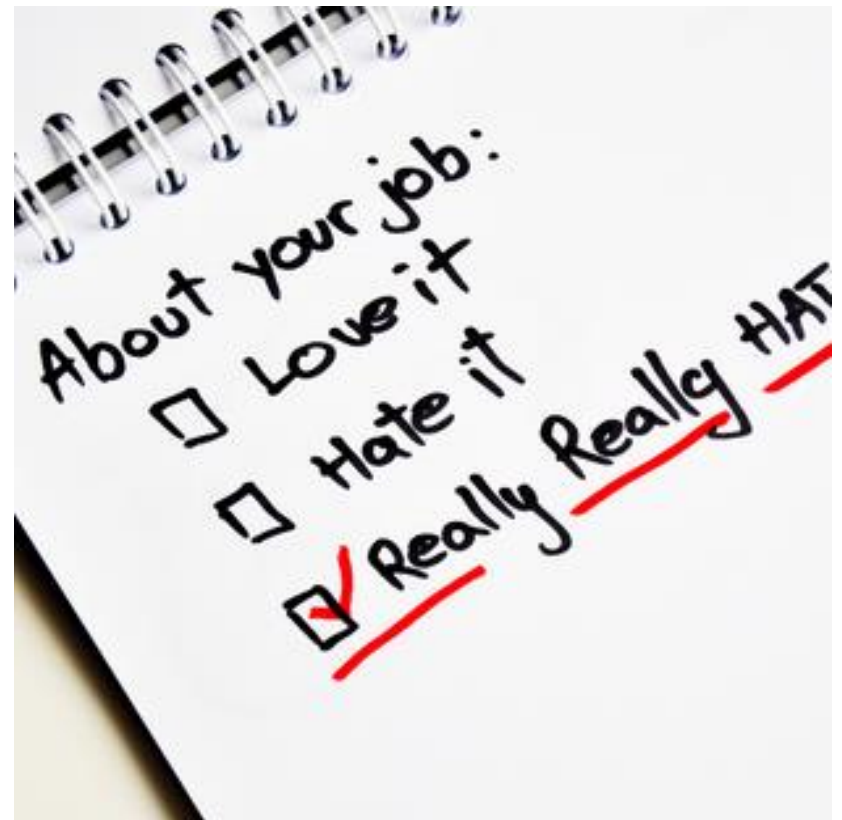 About your job:
Love it
Hate it
Really Really HAT